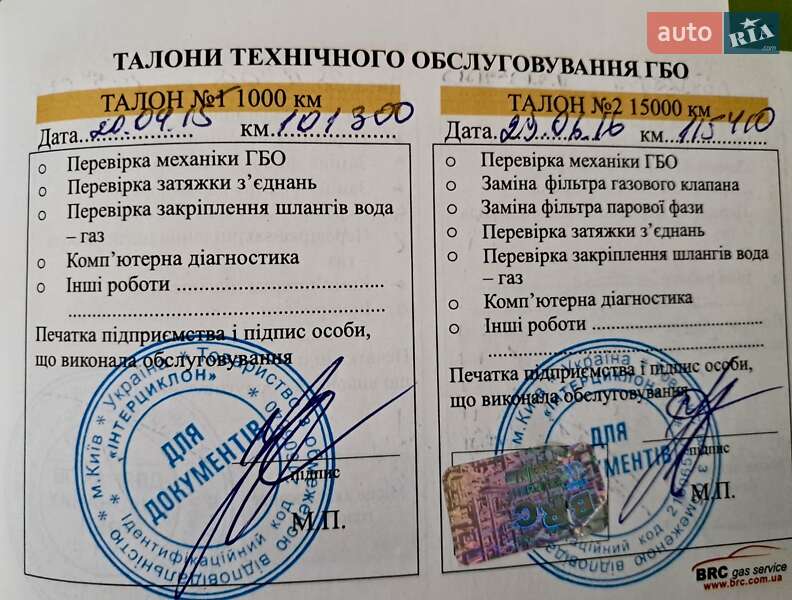 auto RIA.com
ТАЛОНИ ТЕХНІЧНОГО ОБСЛУГОВУВАННЯ ГБО
ТАЛОН №1 1000 км
Дата 20.09.15 км 101300
Перевірка механіки ГБО
Перевірка затяжки з’єднань
Перевірка закріплення шлангів вода
– газ
Комп’ютерна діагностика
Інші роботи
Печатка підприємства і підпис особи,
що виконала обслуговування
підпис
М.П.
* м.Київ * Україна * Товариство з обмеженою відповідальністю *
«ІНТЕРЦИКЛОН»
ДЛЯ
ДОКУМЕНТІВ
Ідентифікаційний код
ТАЛОН №2 15000 км
Дата 29.06.16 км 115410
Перевірка механіки ГБО
Заміна фільтра газового клапана
Заміна фільтра парової фази
Перевірка затяжки з’єднань
Перевірка закріплення шлангів вода
– газ
Комп’ютерна діагностика
Інші роботи
Печатка підприємства і підпис особи,
що виконала обслуговування
підпис
М.П.
м.Київ * Україна *
«ІНТЕРЦИКЛОН
ДЛЯ
BRC
BRC gas service
www.brc.com.ua